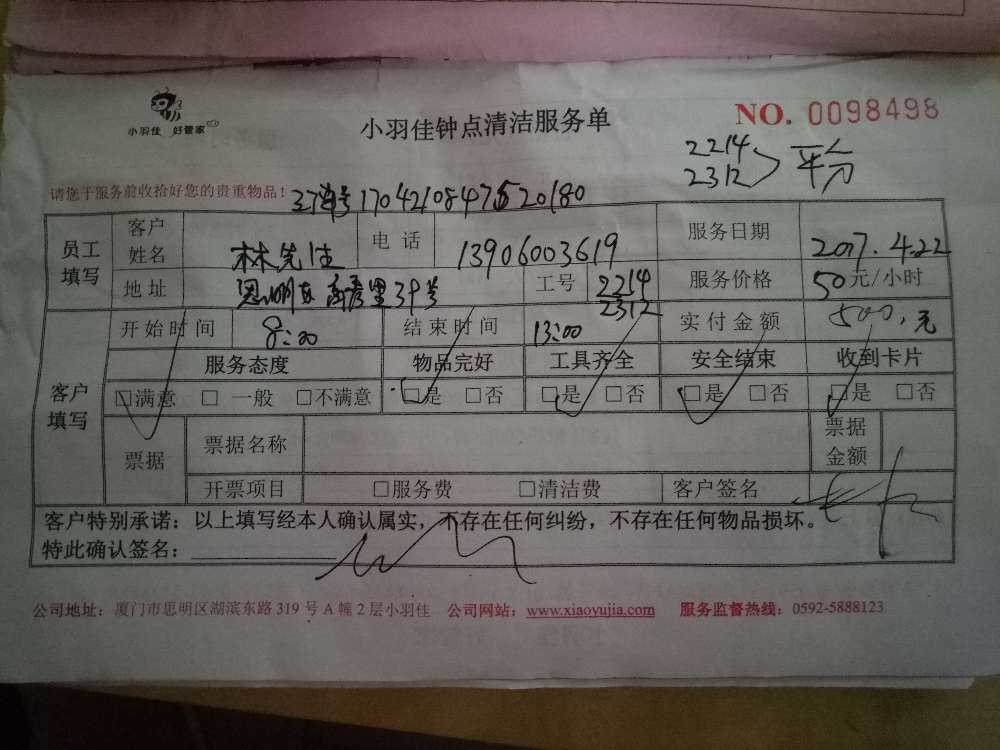 小羽佳 好管家
小羽佳钟点清洁服务单
NO. 0098498
2214
2312
平分
请您于服务前收拾好您的贵重物品!
订单号170421084751520180
员工填写
客户姓名 林先生 电话 13906003619 服务日期 2017.4.22
地址 思明区 里39号 工号 2214 2312 服务价格 50元/小时
客户填写
开始时间 8:00 结束时间 13:00 实付金额 500,元
服务态度 物品完好 工具齐全 安全结束 收到卡片
☑满意 □一般 □不满意 ☑是 □否 ☑是 □否 ☑是 □否 ☑是 □否
票据 票据名称 票据金额
开票项目 □服务费 □清洁费 客户签名
客户特别承诺:以上填写经本人确认属实,不存在任何纠纷,不存在任何物品损坏。
特此确认签名:
公司地址:厦门市思明区湖滨东路319号A幢2层小羽佳 公司网站:www.xiaoyujia.com 服务监督热线:0592-5888123